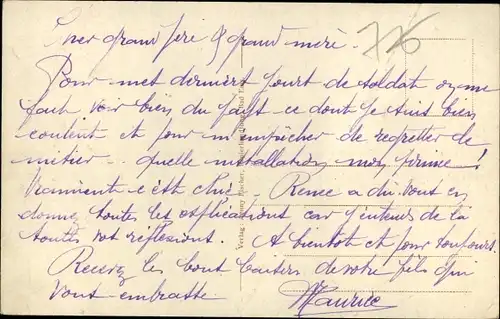 Cher grand père & grand mère.
776
Pour mes derniers jours de soldat on me
fait voir bien du pays ce dont je suis bien
content et pour m'empêcher de regretter de
métier.. quelle installation mon prince!
Vraiment c'est chic. Renee a dû vous en
donner toutes les explications car j'entends de là
toutes vos réflexions. A bientôt et pour toujours.
Recevez les bons baisers de votre fils qui
vous embrasse.
Maurice
Verlag: